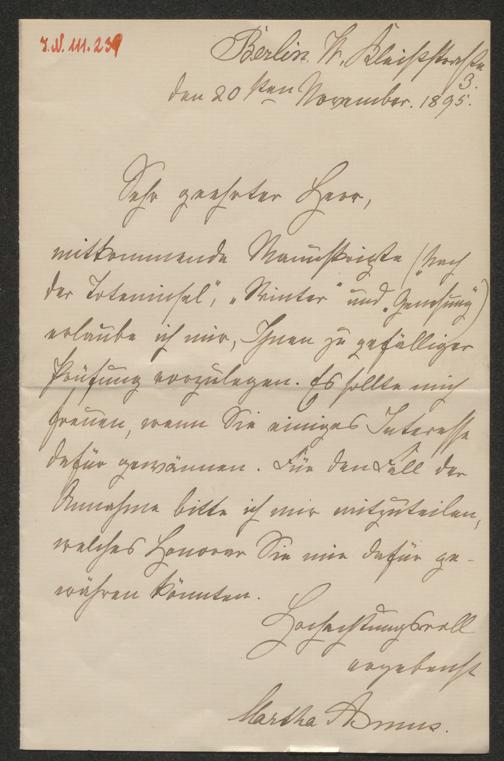 J.N. 111.239
Berlin W, Kleiststrasse
3.
den 20sten November. 1895.
Sehr geehrter Herr,
mitkommende Manuskripte („Nach
der Toteninsel“, „Winter“ und „Genesung“)
erlaube ich mir, Ihnen zu gefälliger
Prüfung vorzulegen. Es sollte mich
freuen, wenn Sie einiges Interesse
dafür gewännen. Für den Fall der
Annahme bitte ich mir mitzuteilen,
welches Honorar Sie mir dafür ge-
währen könnten.
Hochachtungsvoll
ergebenst
Martha Asmus.